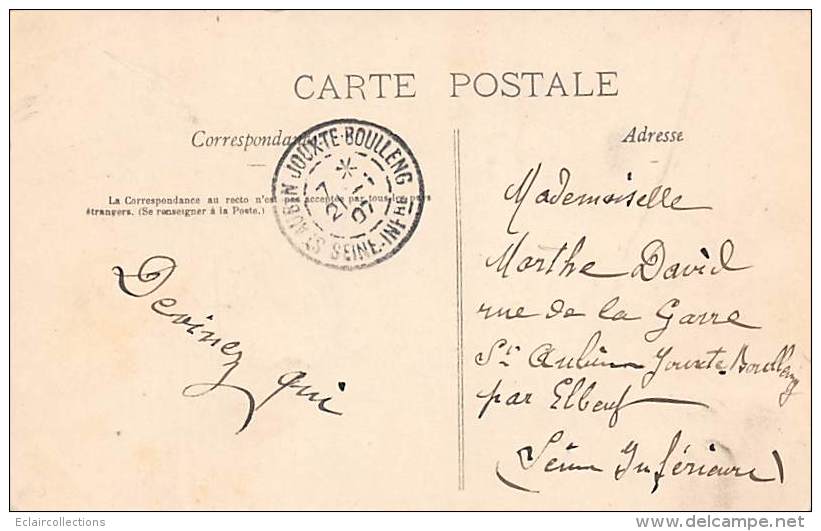 CARTE POSTALE
Correspondance
Adresse
La Correspondance au recto n'est pas acceptée par tous les pays
étrangers. (Se renseigner à la Poste.)
ST AUBIN JOUXTE-BOULLENG
*
7
21
07
SEINE-INFRE
Devinez
qui
Mademoiselle
Marthe David
rue de la Garre
St Aubin Jouxte-Boulleng
par Elbeuf
(Seine Inférieure)
Eclaircollections
http://www.delcampe.net